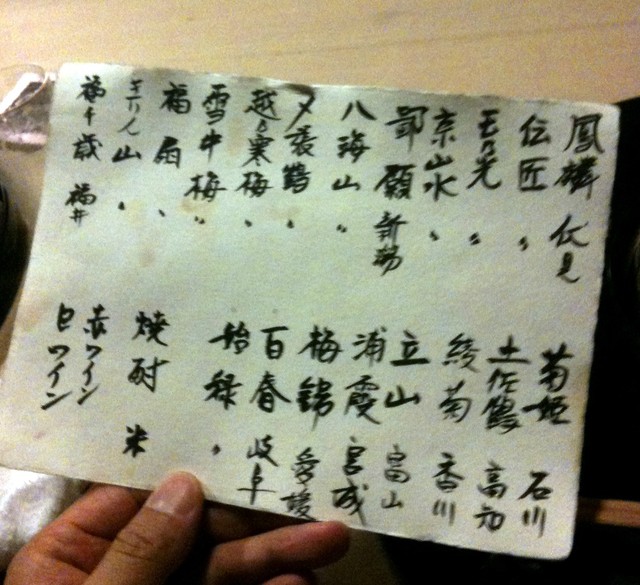 鳳麟 伏見
伝匠 〃
玉乃光 〃
京山水 〃
鄙願 新潟
八海山 〃
〆張鶴 〃
越乃寒梅 〃
雪中梅 〃
福扇 〃
キリン山 〃
福千歳 福井
菊姫 石川
土佐鶴 高知
綾菊 香川
立山 富山
浦霞 宮城
梅錦 愛媛
百春 岐阜
始禄 〃
焼酎 米
赤ワイン
白ワイン